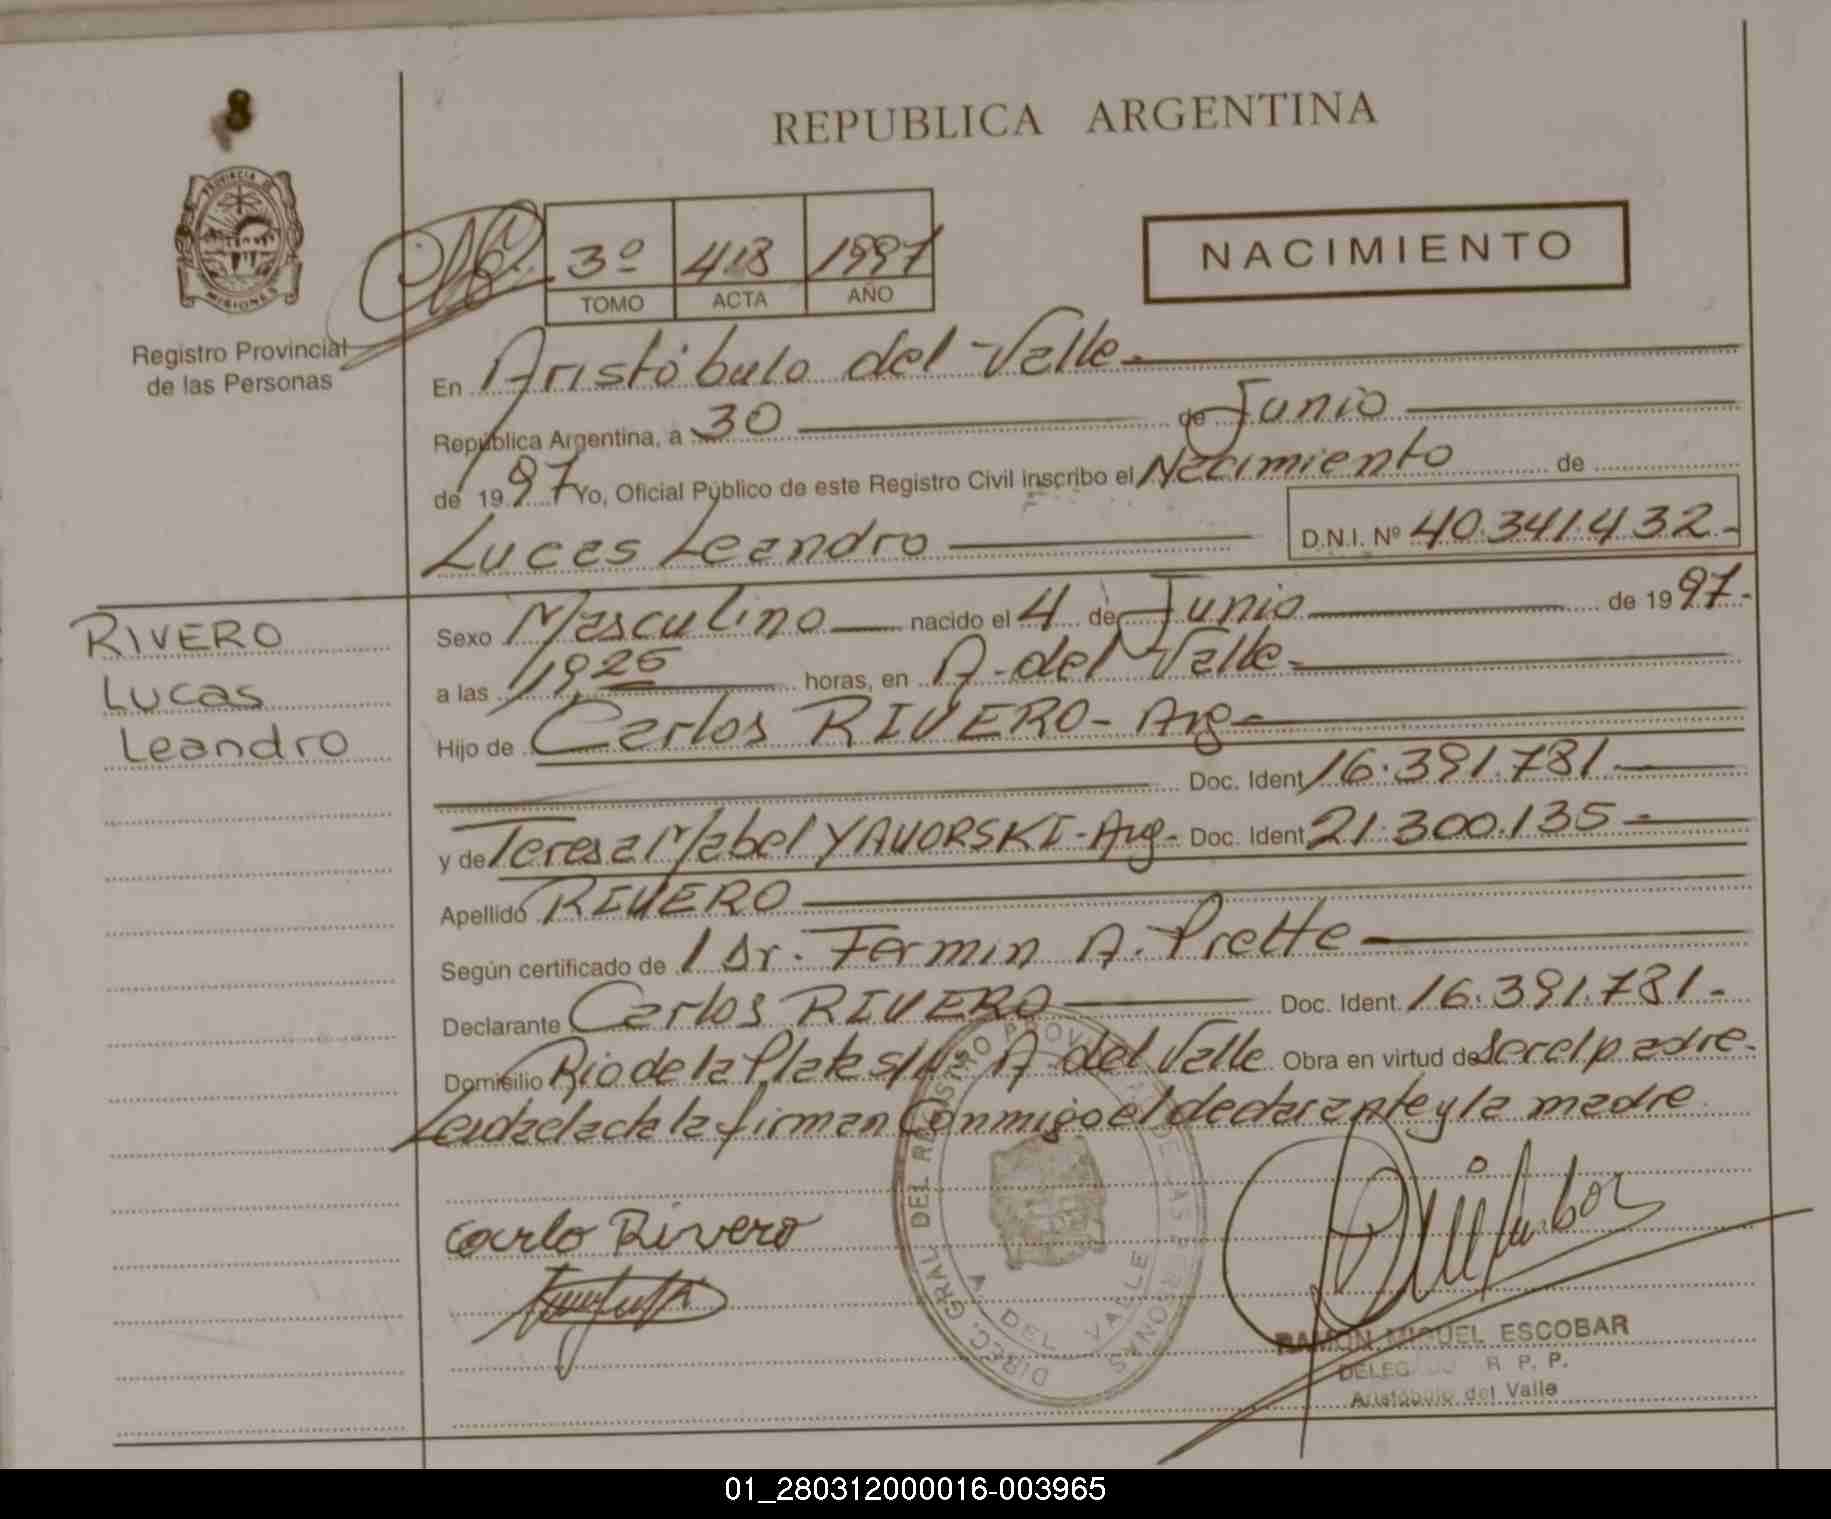 8
REPUBLICA ARGENTINA
PROVINCIA DE
MISIONES
Registro Provincial
de las Personas
3º 418 1997
TOMO ACTA AÑO
NACIMIENTO
En Aristóbulo del Valle.-
República Argentina, a 30 de Junio
de 1997 Yo, Oficial Público de este Registro Civil inscribo el Nacimiento de
Lucas Leandro D.N.I. Nº 40.341.432.-
RIVERO
Lucas
Leandro
Sexo Masculino nacido el 4 de Junio de 1997.-
a las 1925 horas, en A. del Valle.-
Hijo de Carlos RIVERO - Arg-
Doc. Ident 16.391.781
y de Teresa Mabel YAVORSKI - Arg- Doc. Ident 21.300.135-
Apellido RIVERO
Según certificado de 1 Dr. Fermin A. Prette
Declarante Carlos RIVERO Doc. Ident. 16.391.781.-
Domicilio Rio de la Plata s/nº A. del Valle Obra en virtud de Ser el padre.
Leida el acta la firman Conmigo el declarante y la madre
Carlo Rivero
DIREC. GRAL DEL REGISTRO PROVINCIAL DE LAS PERSONAS
A. DEL VALLE
RAMON MIGUEL ESCOBAR
R. P. P.
Aristóbulo del Valle
01_280312000016-003965